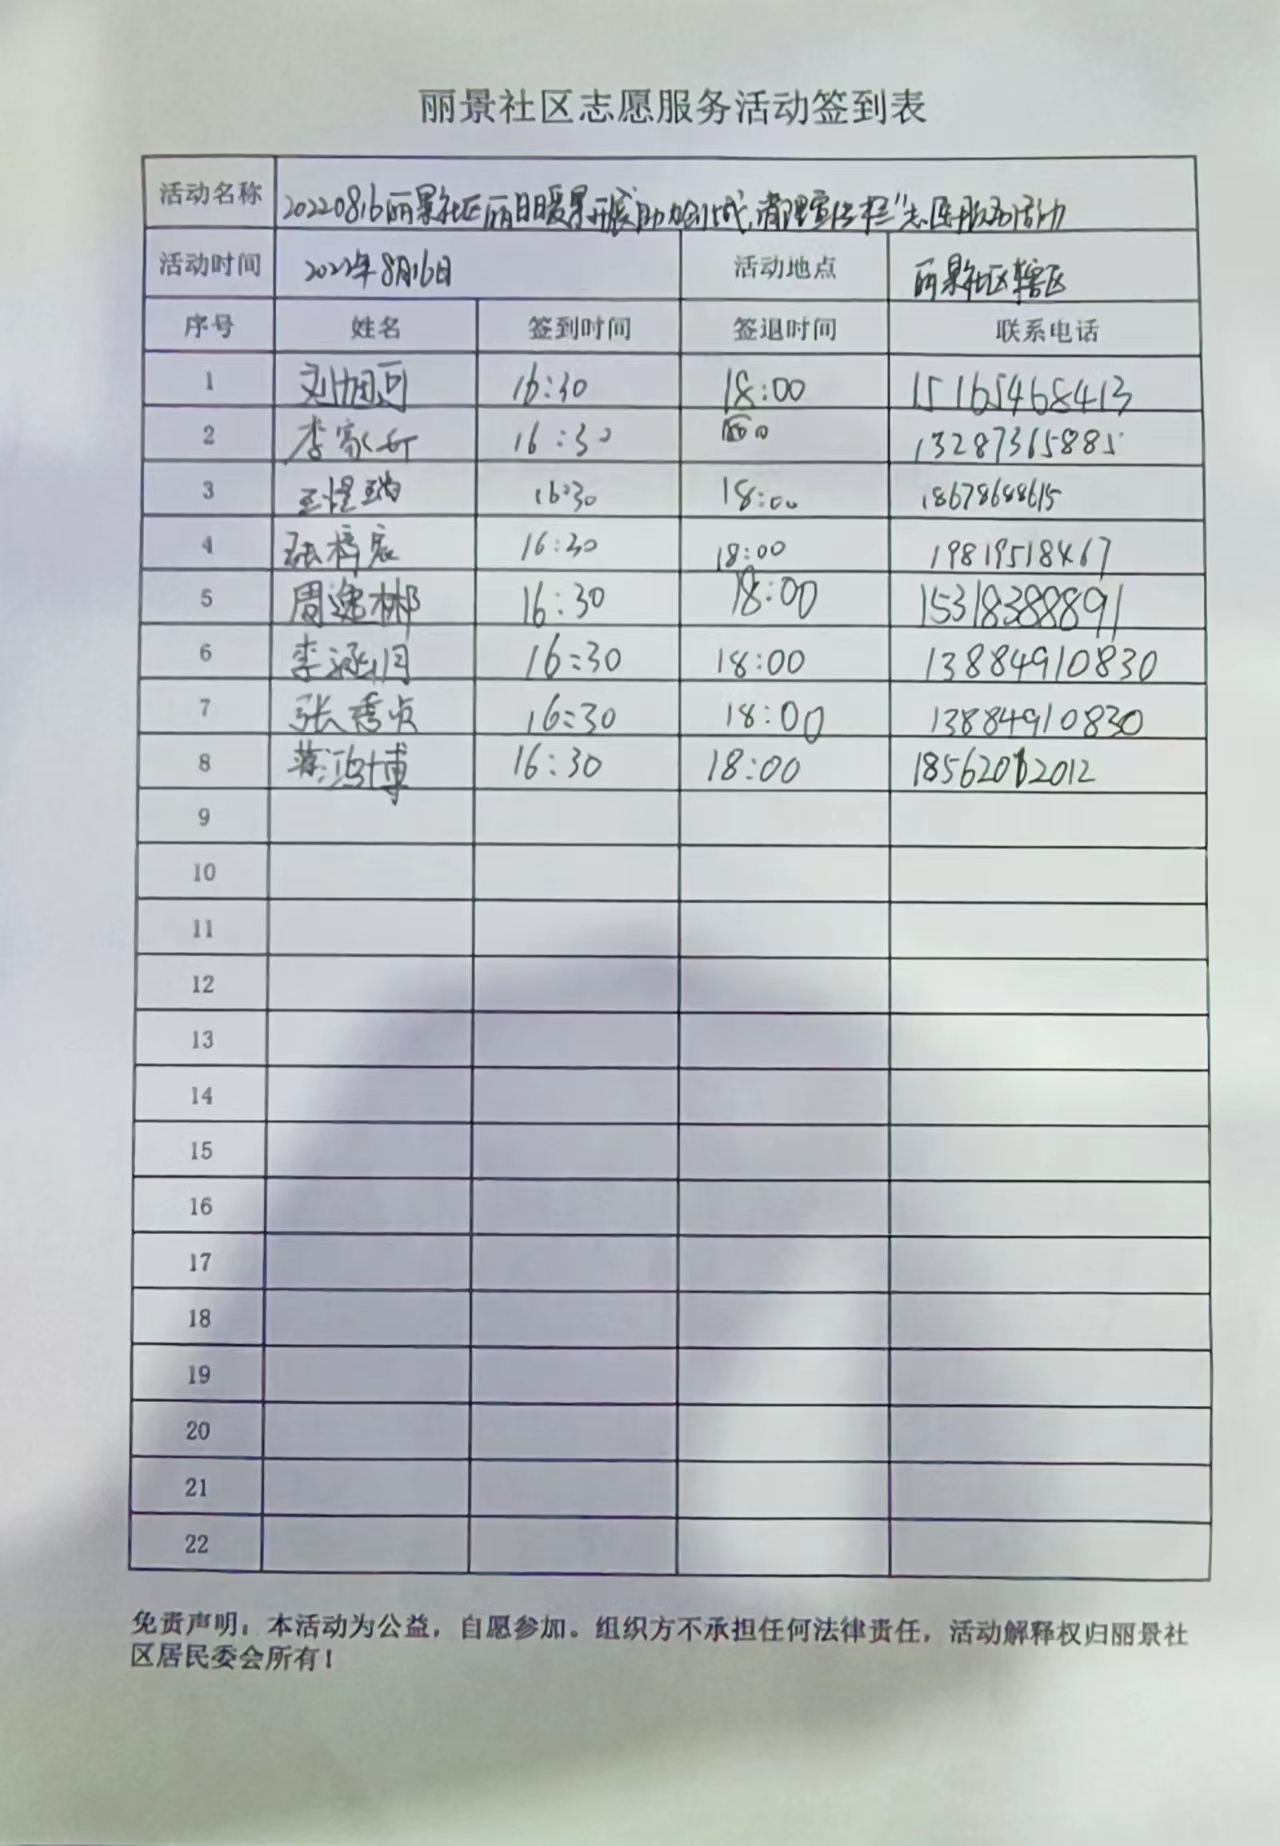 丽景社区志愿服务活动签到表
活动名称 20220816丽景社区丽日暖景开展"助力创城,清理宣传栏"志愿服务活动
活动时间 2022年8月16日 活动地点 丽景社区辖区
序号 姓名 签到时间 签退时间 联系电话
1 刘旭可 16:30 18:00 15165468413
2 李家 16:30 13287365885
3 王煜瑞 16:30 18:00 18678688615
4 张梓宸 16:30 18:00 19819518467
5 周逸彬 16:30 18:00 15318388891
6 李涵月 16:30 18:00 13884910830
7 张秀贞 16:30 18:00 13884910830
8 蒋鸿博 16:30 18:00 18562012012
9
10
11
12
13
14
15
16
17
18
19
20
21
22
免责声明:本活动为公益,自愿参加。组织方不承担任何法律责任,活动解释权归丽景社
区居民委会所有!